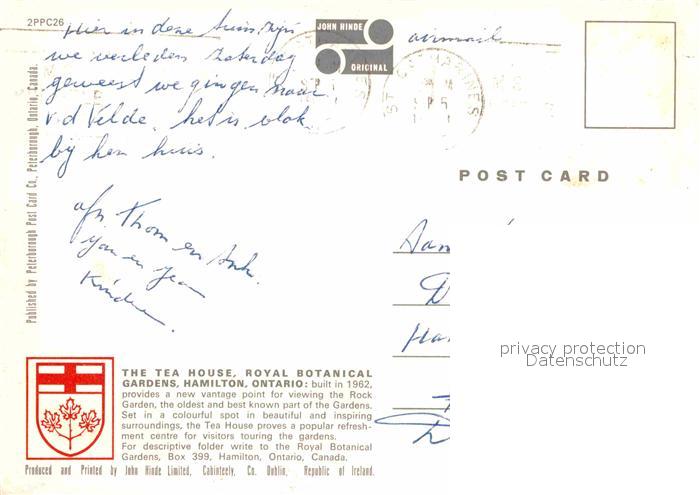 2PPC26
Hier in deze tuin zijn
we verleden Zaterdag
geweest we gingen naar
v.d Velde. het is vlak
bij hen huis.
afz. Thom en Anh.
Jan en Jea
Kinder.
JOHN HINDE
ORIGINAL
airmail
ST. CATHARINES
POST CARD
Aan
D
Ha
privacy protection
Datenschutz
Published by Peterborough Post Card Co., Peterborough, Ontario, Canada.
THE TEA HOUSE, ROYAL BOTANICAL
GARDENS, HAMILTON, ONTARIO: built in 1962,
provides a new vantage point for viewing the Rock
Garden, the oldest and best known part of the Gardens.
Set in a colourful spot in beautiful and inspiring
surroundings, the Tea House proves a popular refresh-
ment centre for visitors touring the gardens.
For descriptive folder write to the Royal Botanical
Gardens, Box 399, Hamilton, Ontario, Canada.
Produced and Printed by John Hinde Limited, Cabinteely, Co. Dublin, Republic of Ireland.